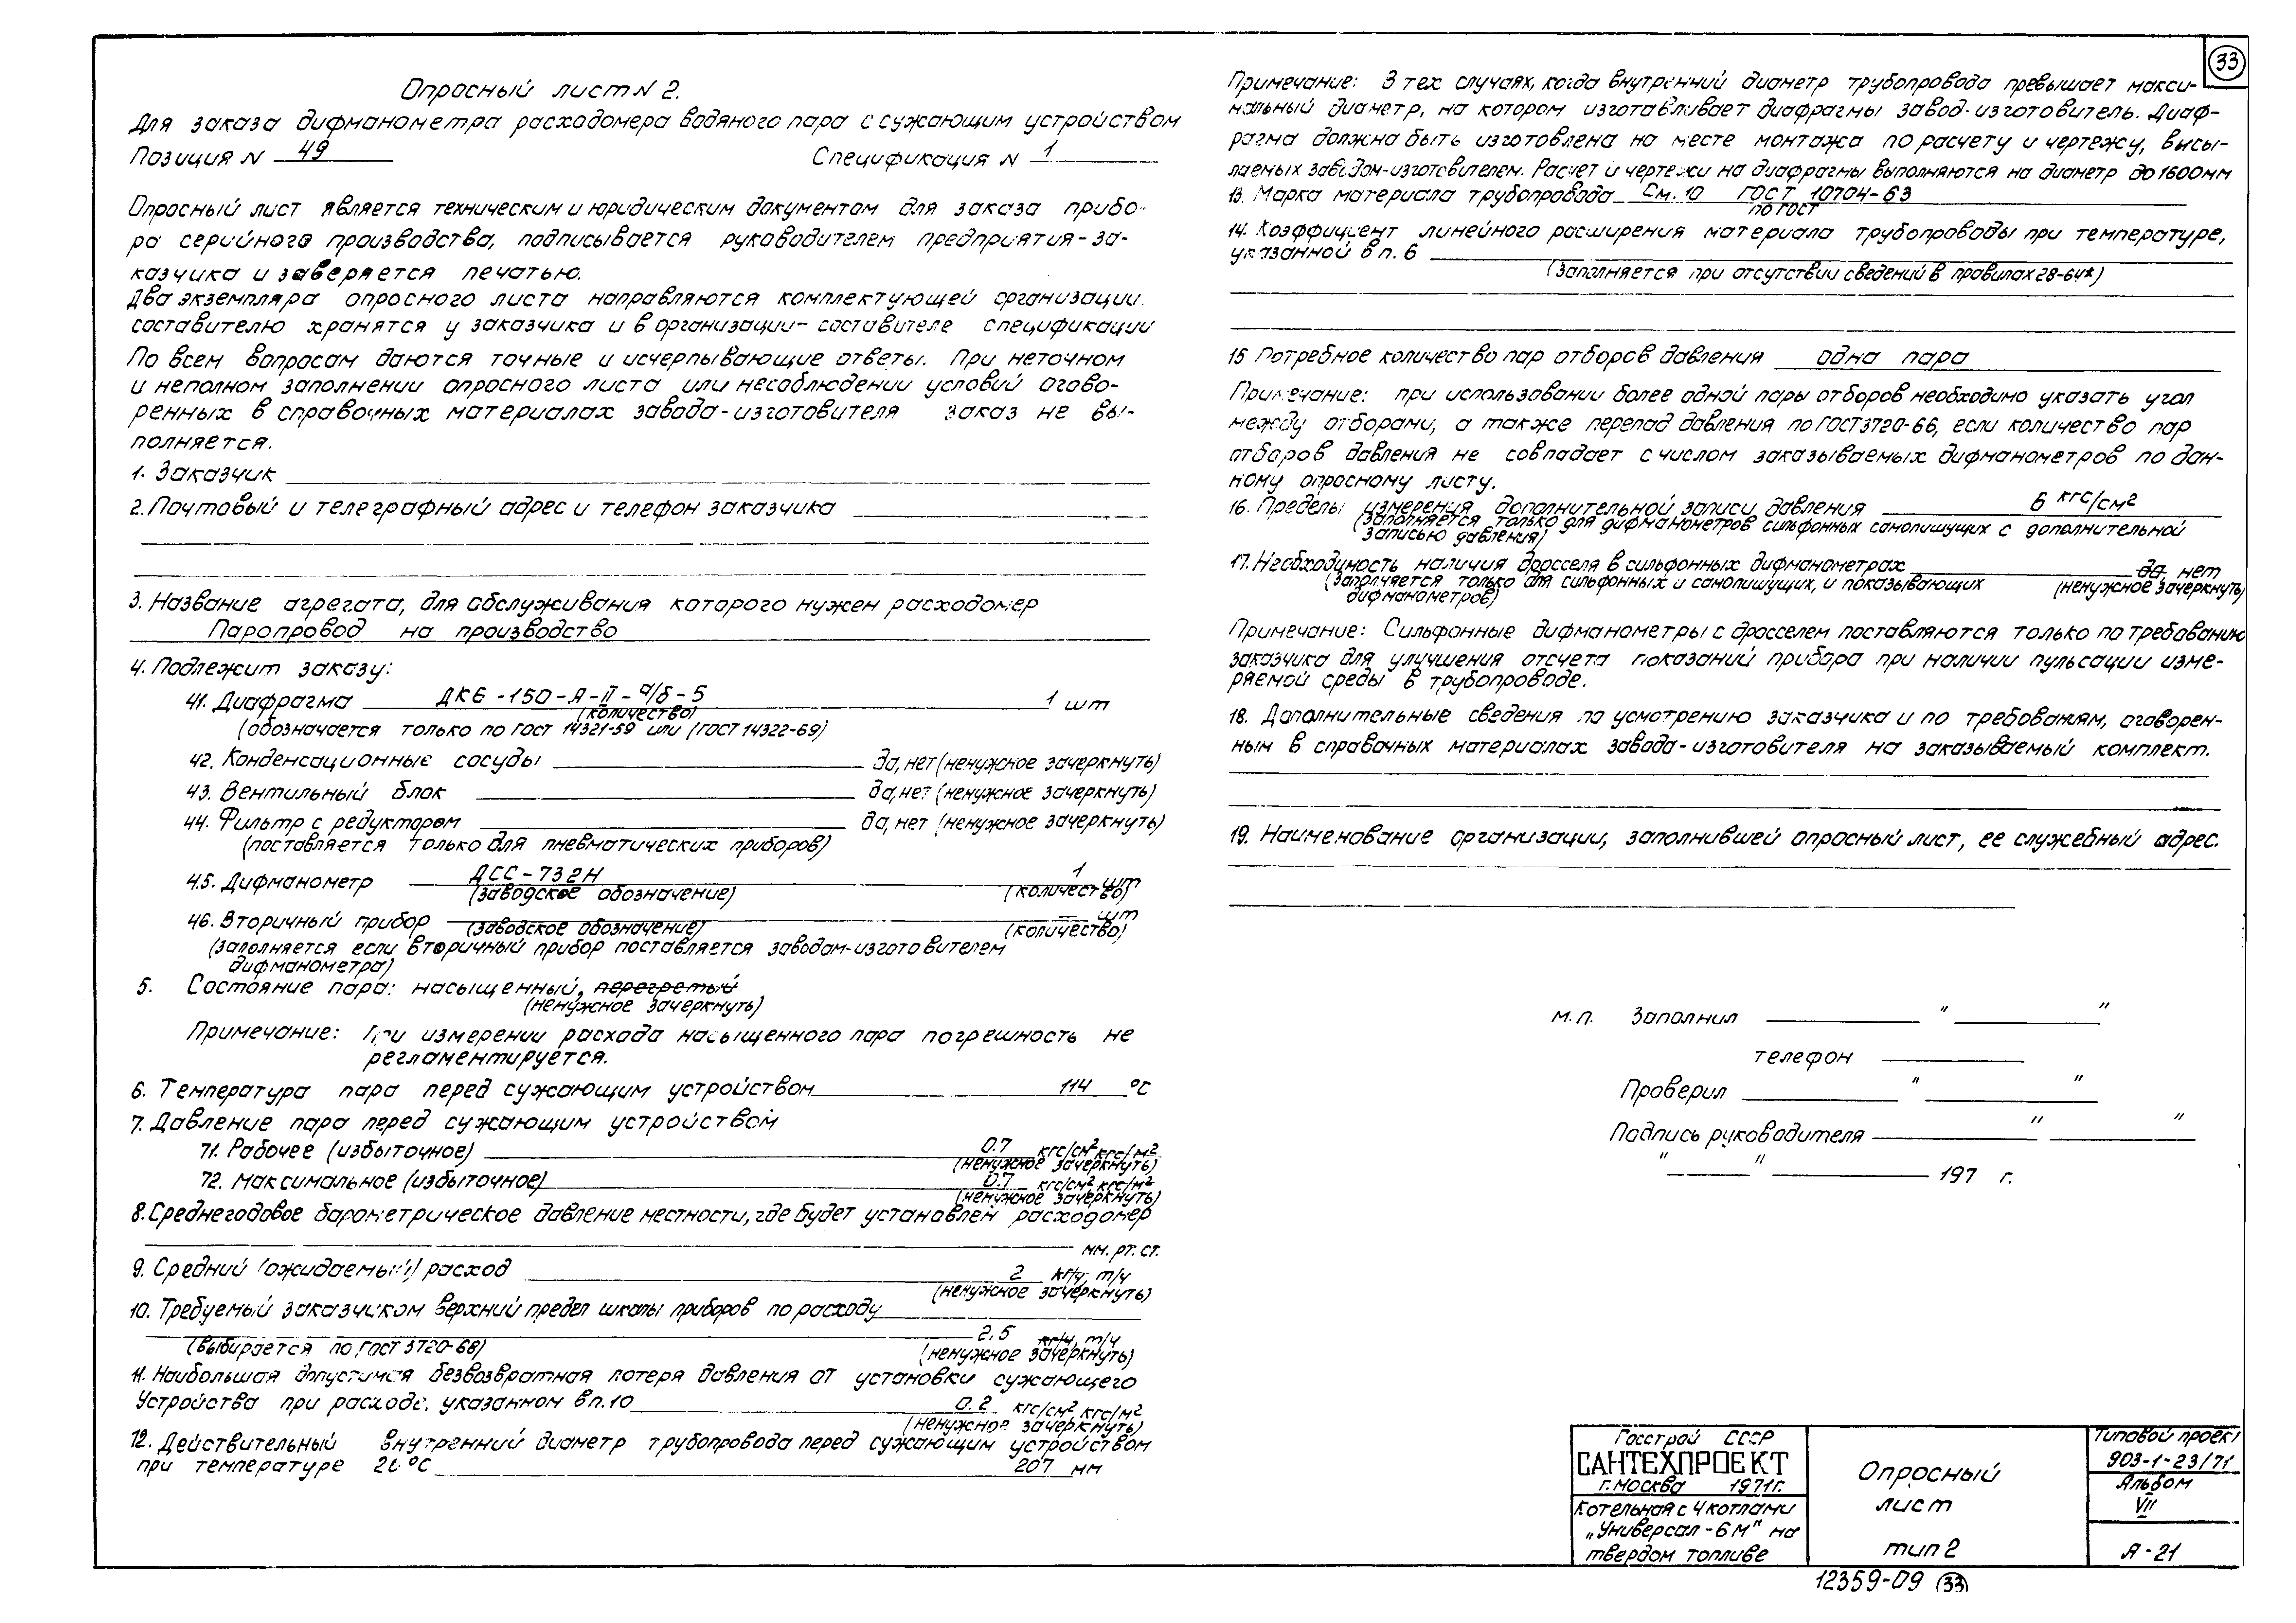 33
Опросный лист N 2.
Для заказа дифманометра расходомера водяного пара с сужающим устройством
Позиция N 49 Спецификация N 1
Опросный лист является техническим и юридическим документом для заказа прибо-
ра серийного производства, подписывается руководителем предприятия-за-
казчика и заверяется печатью.
Два экземпляра опросного листа направляются комплектующей организации.
составителю хранятся у заказчика и в организации-составителе спецификации
По всем вопросам даются точные и исчерпывающие ответы. При неточном
и неполном заполнении опросного листа или несоблюдении условий огово-
ренных в справочных материалах завода-изготовителя заказ не вы-
полняется.
1. Заказчик
2. Почтовый и телеграфный адрес и телефон заказчика
3. Название агрегата, для обслуживания которого нужен расходомер
Паропровод на производство
4. Подлежит заказу:
41. Диафрагма ДК6-150-Я-II-а/б-5 1 шт
(количество)
(обозначается только по ГОСТ 14321-59 или (ГОСТ 14322-69)
42. Конденсационные сосуды да, нет (ненужное зачеркнуть)
43. Вентильный блок да, нет (ненужное зачеркнуть)
44. Фильтр с редуктором да, нет (ненужное зачеркнуть)
(поставляется только для пневматических приборов)
4.5. Дифманометр ДСС-732Н 1 шт
(заводское обозначение) (количество)
46. Вторичный прибор — шт
(заводское обозначение) (количество)
(заполняется если вторичный прибор поставляется заводом-изготовителем
дифманометра)
5. Состояние пара: насыщенный, перегретый
(ненужное зачеркнуть)
Примечание: При измерении расхода насыщенного пара погрешность не
регламентируется.
6. Температура пара перед сужающим устройством 114 °С
7. Давление пара перед сужающим устройством
71. Рабочее (избыточное) 0.7 кгс/см² кгс/м²
(ненужное зачеркнуть)
72. Максимальное (избыточное) 0.7 кгс/см² кгс/м²
(ненужное зачеркнуть)
8. Среднегодовое барометрическое давление местности, где будет установлен расходомер
мм. рт. ст.
9. Средний (ожидаемый) расход 2 кг/ч, т/ч
(ненужное зачеркнуть)
10. Требуемый заказчиком верхний предел шкалы приборов по расходу
2.5 кг/ч, т/ч
(выбирается по ГОСТ 3720-68) (ненужное зачеркнуть)
11. Наибольшая допустимая безвозвратная потеря давления от установки сужающего
Устройства при расходе, указанном в п. 10 0.2 кгс/см² кгс/м²
(ненужное зачеркнуть)
12. Действительный внутренний диаметр трубопровода перед сужающим устройством
при температуре 20 °С 207 мм
Примечание: В тех случаях, когда внутренний диаметр трубопровода превышает макси-
мальный диаметр, на котором изготавливает диафрагмы завод-изготовитель. Диаф-
рагма должна быть изготовлена на месте монтажа по расчету и чертежу, высы-
лаемых заводом-изготовителем. Расчет и чертежи на диафрагмы выполняются на диаметр до 1600мм
13. Марка материала трубопровода См. 10 ГОСТ 10704-63
по ГОСТ
14. Коэффициент линейного расширения материала трубопроводы при температуре,
указанной в п. 6
(заполняется при отсутствии сведений в правилах 28-64*)
15 Потребное количество пар отборов давления одна пара
Примечание: при использовании более одной пары отборов необходимо указать угол
между отборами, а также перепад давления по ГОСТ 3720-66, если количество пар
отборов давления не совпадает с числом заказываемых дифманометров по дан-
ному опросному листу.
16. Пределы измерения дополнительной записи давления 6 кгс/см²
(заполняется только для дифманометров сильфонных самопишущих с дополнительной
записью давления)
17. Необходимость наличия дросселя в сильфонных дифманометрах да нет
(заполняется только для сильфонных и самопишущих, и показывающих (ненужное зачеркнуть)
дифманометров)
Примечание: Сильфонные дифманометры с дросселем поставляются только по требованию
заказчика для улучшения отсчета показаний прибора при наличии пульсации изме-
ряемой среды в трубопроводе.
18. Дополнительные сведения по усмотрению заказчика и по требованиям, оговорен-
ным в справочных материалах завода-изготовителя на заказываемый комплект.
19. Наименование организации, заполнившей опросный лист, ее служебный адрес.
м.п. Заполнил " "
телефон
Проверил " "
Подпись руководителя " "
" " 197 г.
Госстрой СССР
САНТЕХПРОЕКТ
г. Москва 1971г.
Котельная с 4 котлами
„Универсал-6М" на
твердом топливе
Опросный
лист
тип 2
Типовой проект
903-1-23/71
Альбом
VII
Я-21
12359-09 33